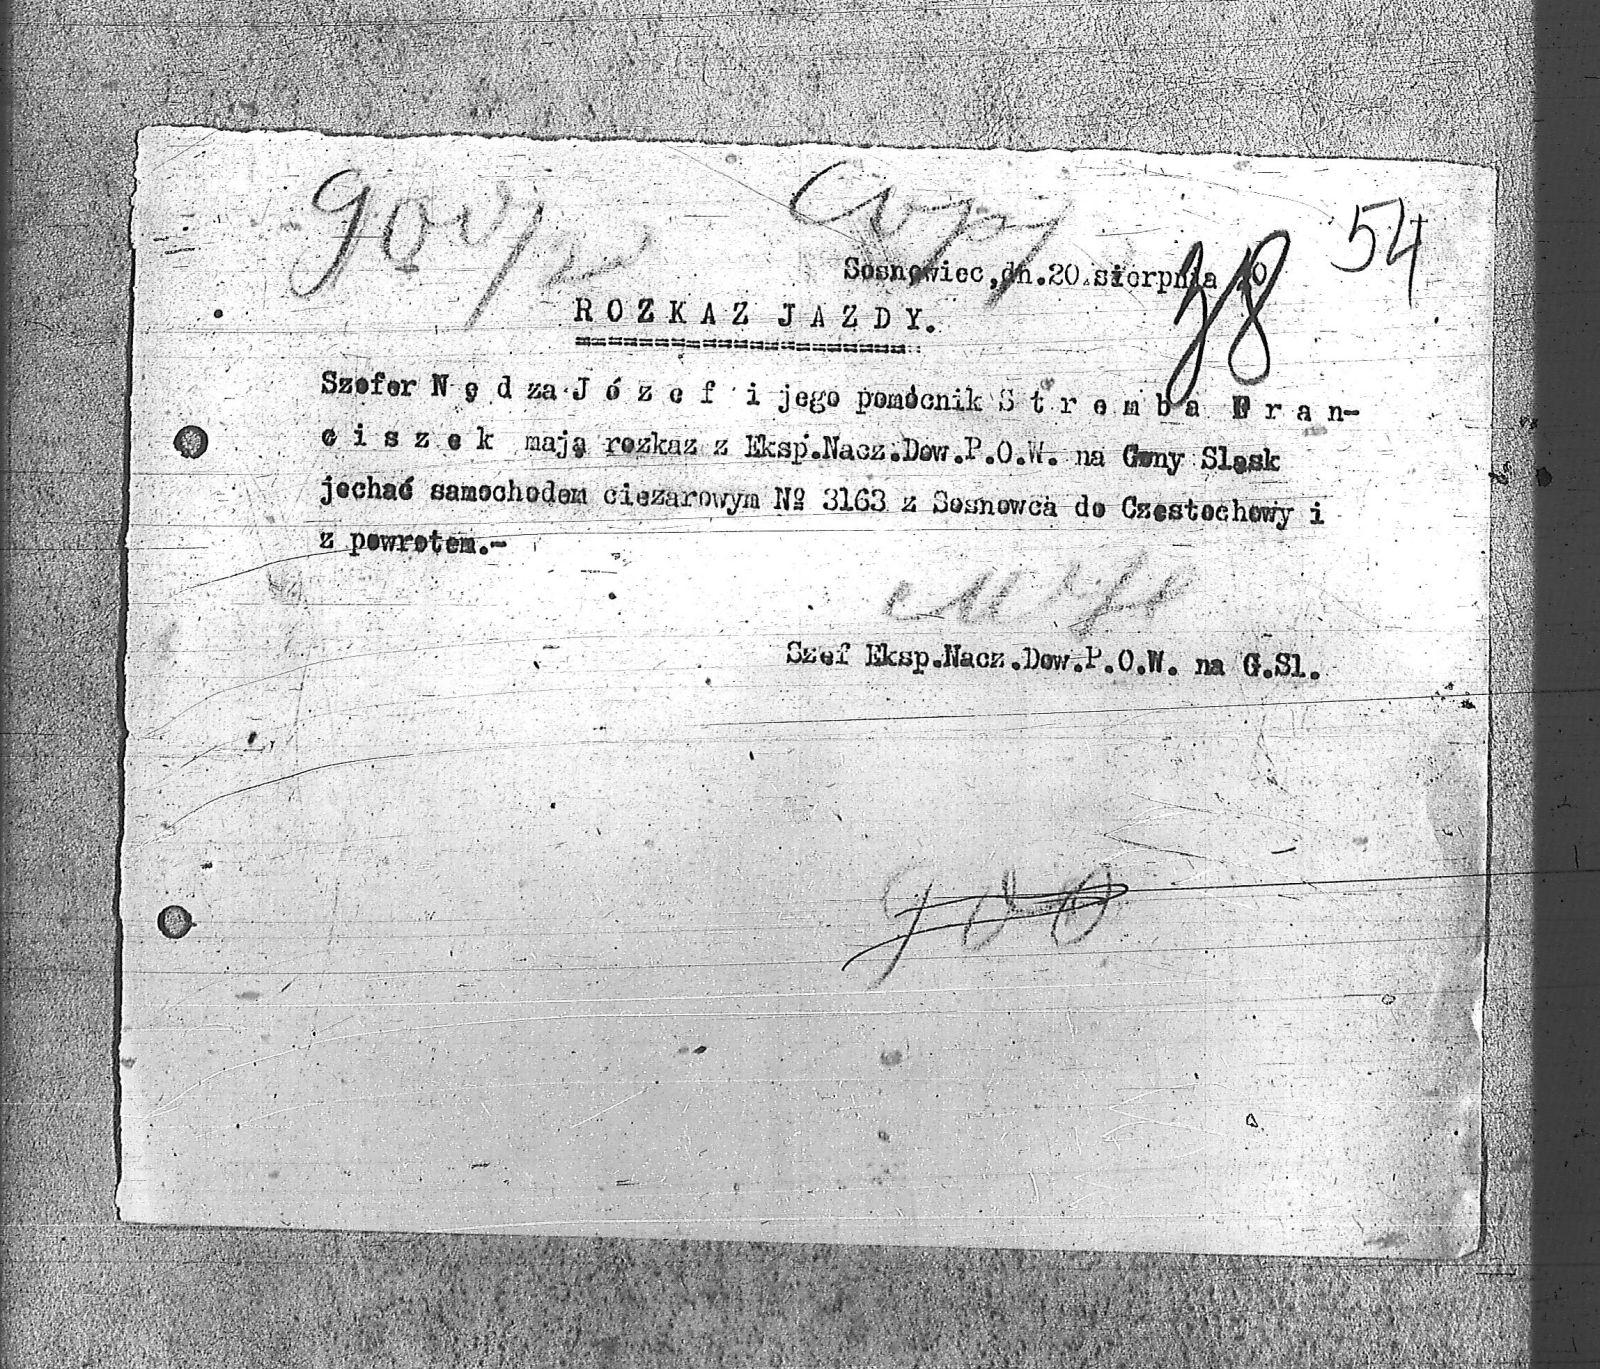 54
Sosnowiec,dn.20.sierpnia 20
38
ROZKAZ JAZDY.
Szofer N ę d za J ó z e f i jego pomócnik S t r e m b a F r a n-
c i s z e k mają rozkaz z Eksp.Nacz.Dow.P.O.W. na Gony Sląsk
jechać samochodem ciezarowym № 3163 z Sosnowca do Częstochowy i
z powrotem.-
Szef Eksp.Nacz.Dow.P.O.W. na G.Sl.